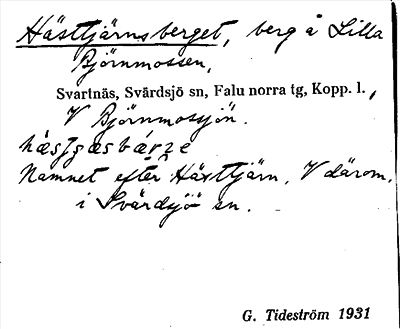 Hästtjärnsberget, berg å Lilla
Björnmossen,
Svartnäs, Svärdsjö sn, Falu norra tg, Kopp. l.,
V Björnmossjön.
hæstgæsbærze
Namnet efter Hästtjärn, V därom,
i Svärdsjö sn.
G. Tideström 1931